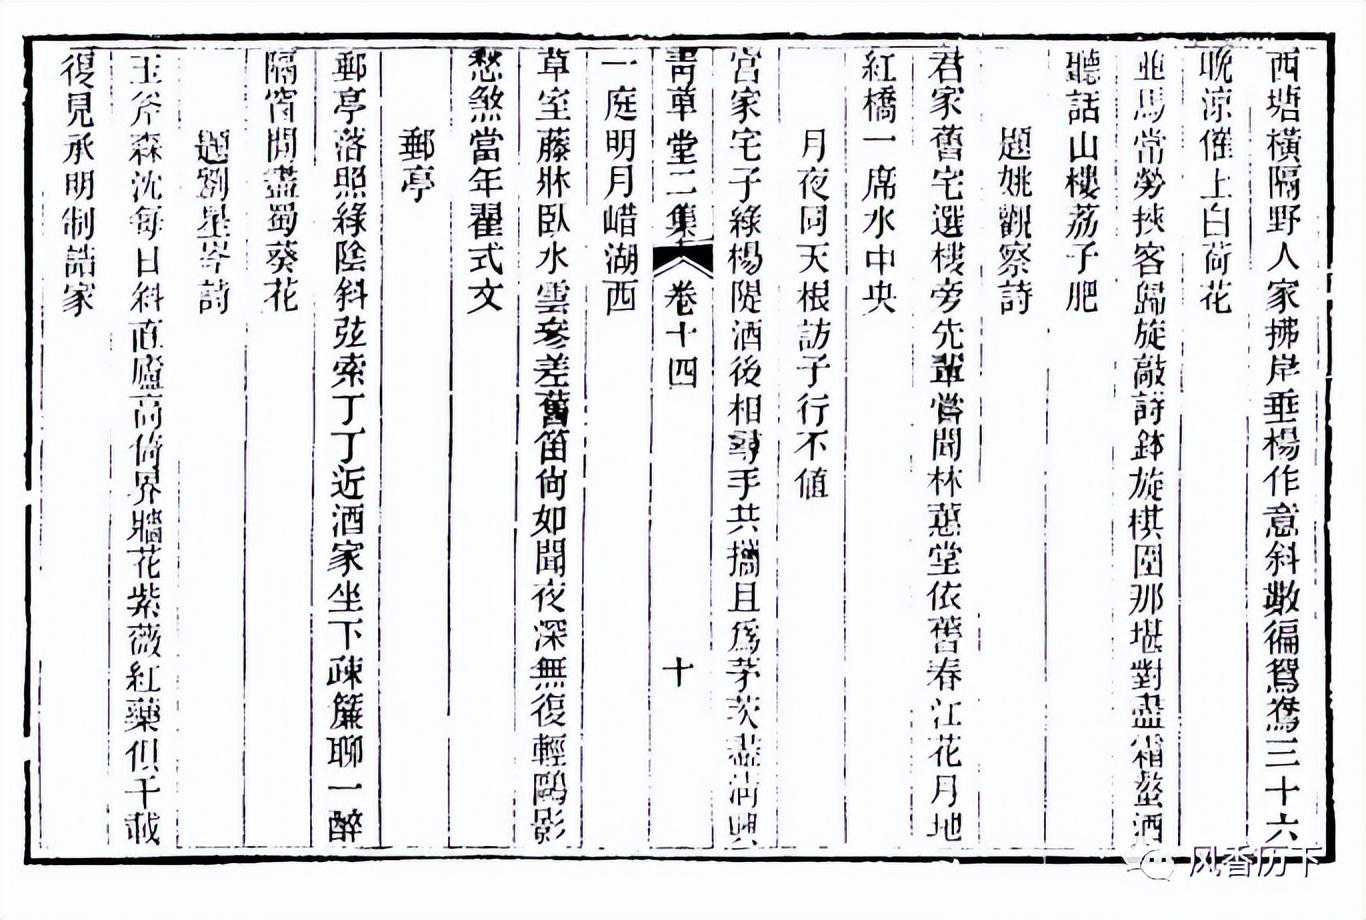 西塘橫隔野人家拂岸垂楊作意斜數徧鴛鴦三十六
晚涼催上白荷花
並馬常勞挾客歸旋敲詩鉢旋棋圍那堪對盡霜螯酒
聽話山樓荔子肥
題姚觀察詩
君家舊宅選樓旁先輩嘗聞林蕙堂依舊春江花月地
紅橋一席水中央
月夜同天根訪子行不値
宮家宅子綠楊隄酒後相尋手共攜且爲茅茨盡淸興
靑草堂二集
卷十四
十
一庭明月㟙湖西
草室藤牀臥水雲參差舊笛尙如聞夜深無復輕鷗影
愁煞當年翟式文
郵亭
郵亭落照綠陰斜弦索丁丁近酒家坐下疎簾聊一醉
隔窗閒盡蜀葵花
題劉星岑詩
玉斧森沈每日斜直廬高倚界牆花紫薇紅藥俱千載
復見承明制誥家
风香历下